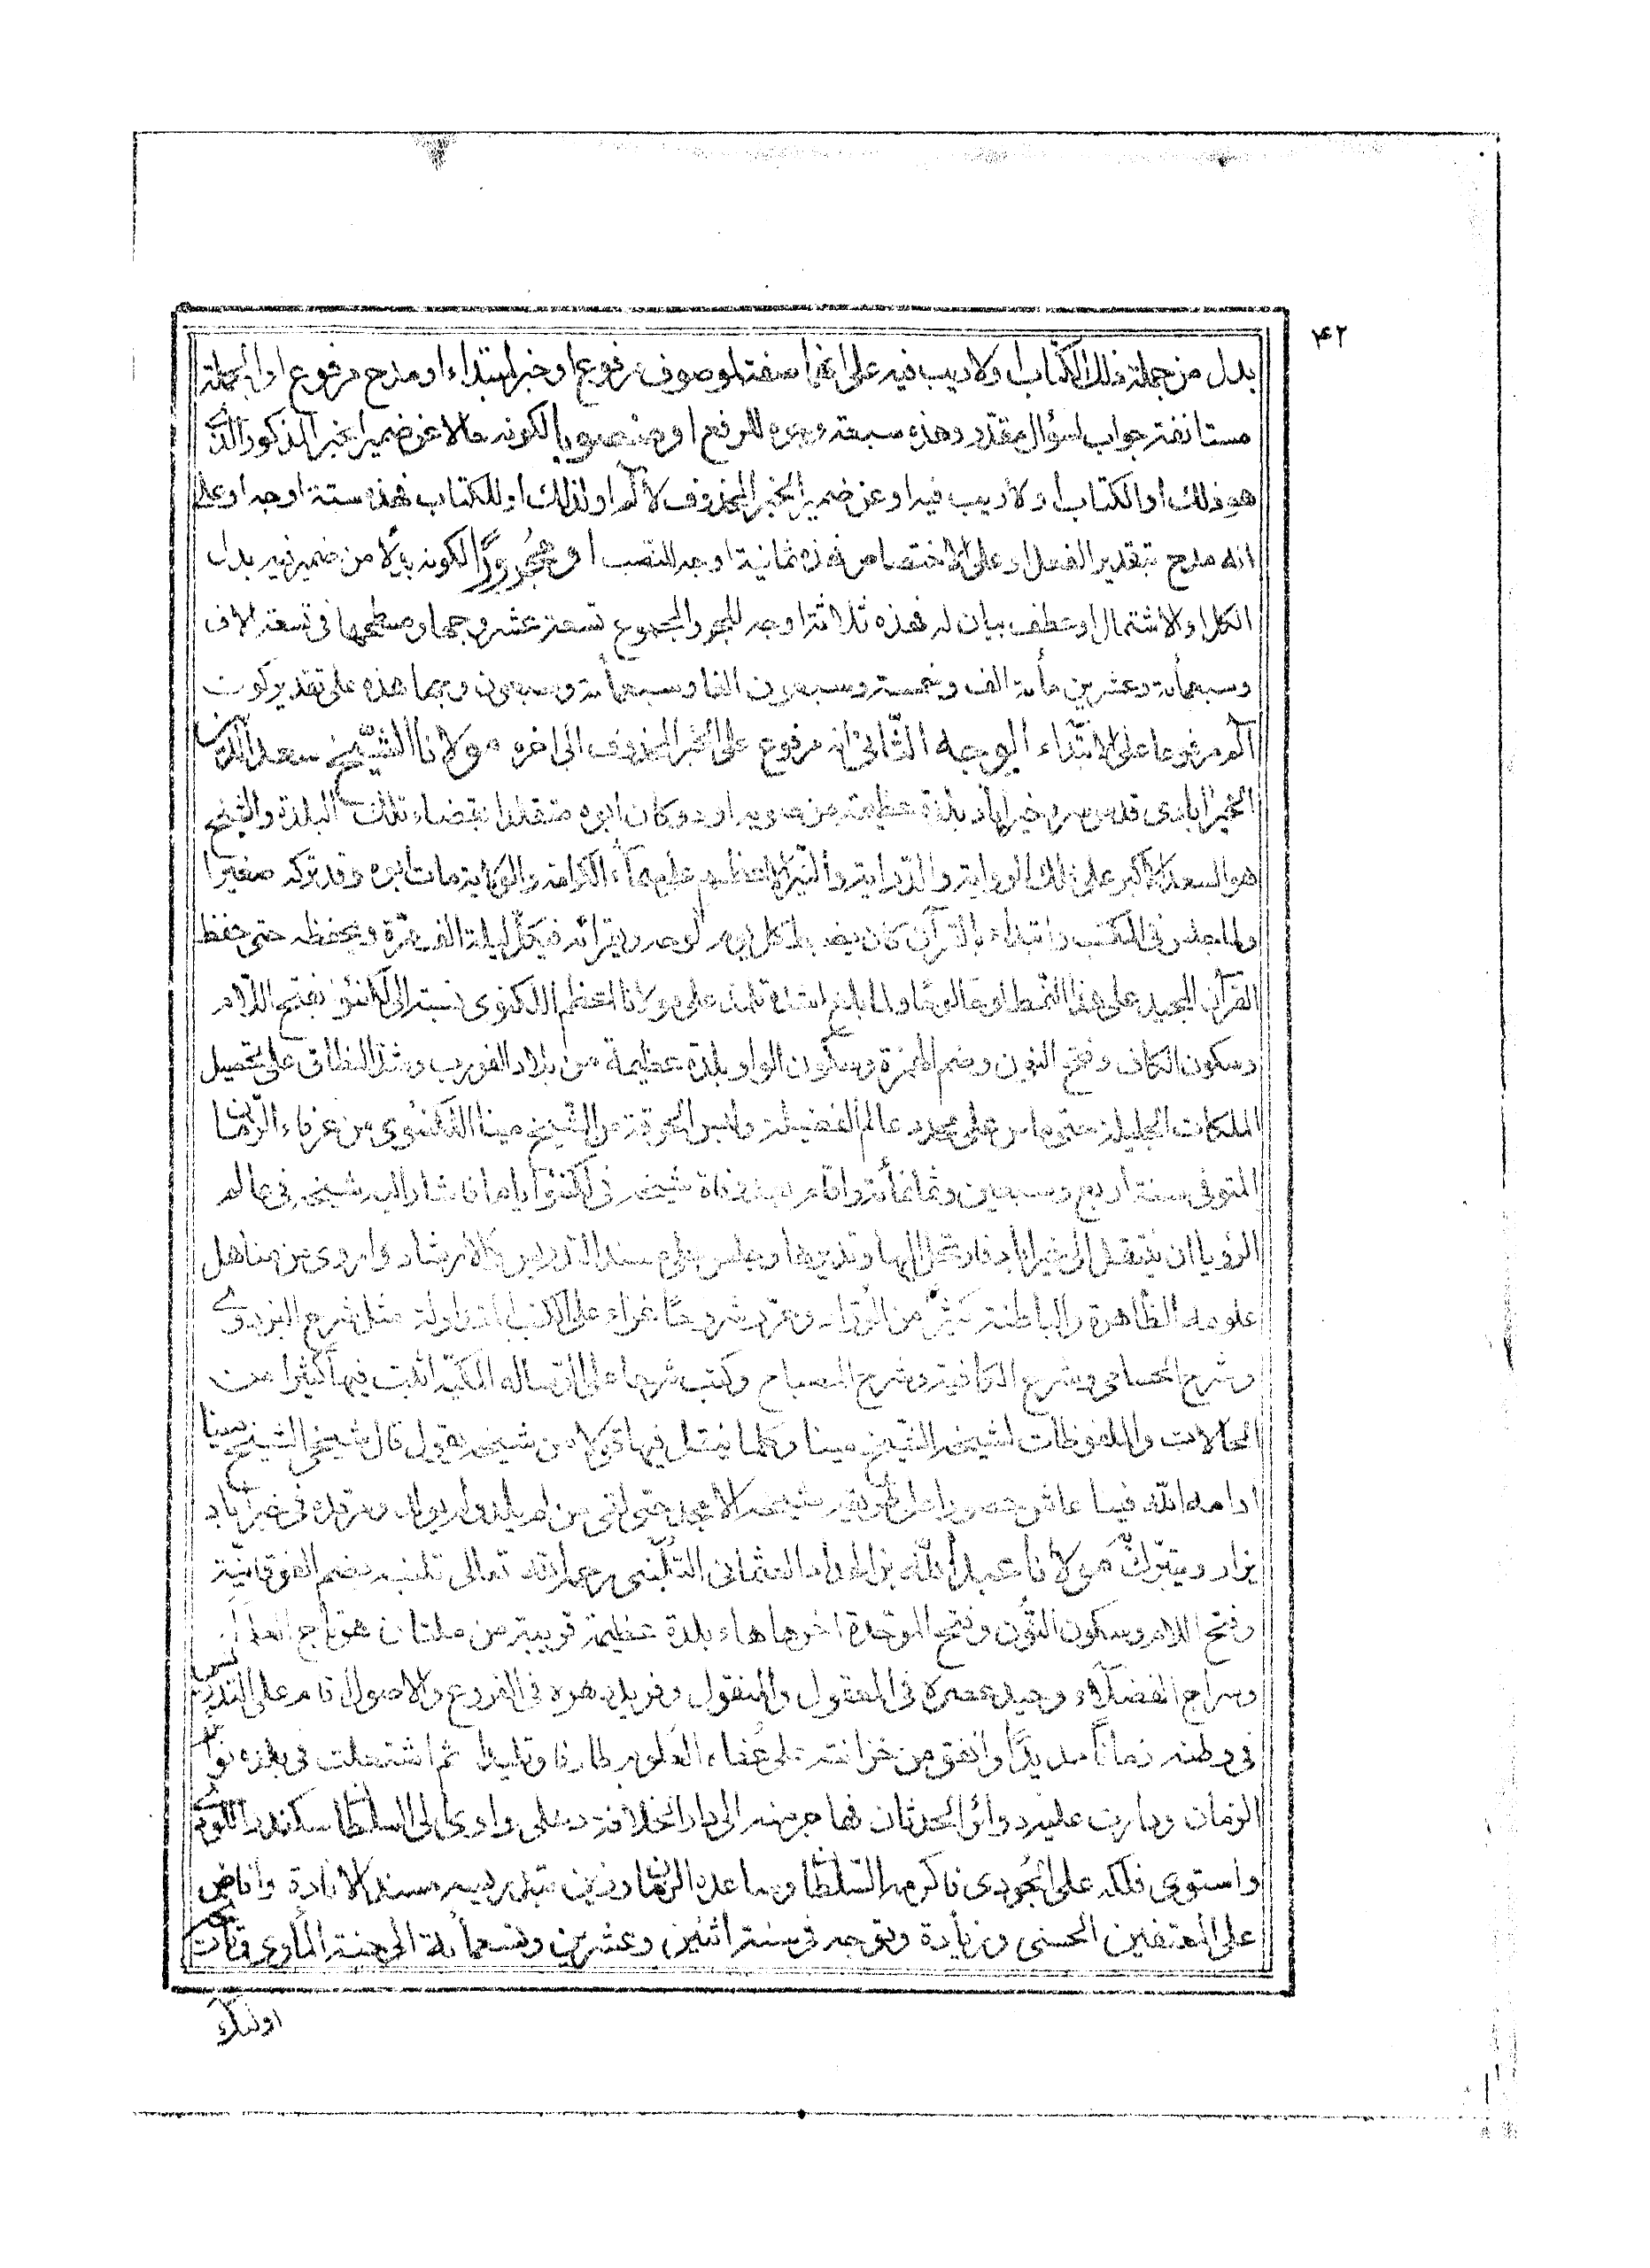 ۴۲
بدل من جملة ذلك الكتاب او لاريب فيه على انها صفة لموصوف مرفوع او خبر ابتداء او مدح مرفوع او الجملة
مستانفة جواب لسؤال مقدر وهذه سبعة وجوه للرفع او منصوبا لكونه حالا عن ضمير الخبر المذكور الذى
هو ذلك او الكتاب او لاريب فيه او عن ضمير الخبر المحذوف لآلم او لذلك او للكتاب فهذه ستة اوجه او على
انه مدح بتقدير الفعل او على الاختصاص فهذه ثمانية اوجه للنصب او مجرورًا لكونه بدلا من ضمير فيه بدل
الكل او الاشتمال او عطف بيان له فهذه ثلاثة اوجه للجر والمجموع تسعة عشر وجها ومسطحها فى تسعة الاف
وسبعمأة وعشرين مأة الف وخمسة وسبعون الفا وسبعمأة وسبعون وجها هذه على تقدير كون
آلم مرفوعا على الابتداء الوجه الثانى انه مرفوع على الخبر المحذوف الى اخره مولانا الشيخ سعد الدين
الخيرابادى قدس سره خيراباد بلدة عظيمة من صوبه اوده وكان ابوه متقلدا بقضاء تلك البلدة والشيخ
هو السعد الاكبر على فلك الرواية والدراية والنير الاعظم على سماء الكرامة والولاية مات ابوه وقد تركه صغيرا
ولما جلس فى المكتب وابتداء بالقرآن كان يضع كل يوم لوحه ويقرأه فى كل ليلة الف مرة ويحفظه حتى حفظ
القرآن المجيد على هذا النمط او حالوها ولما بلغ اشده تلمذ على مولانا اعظم اللكنوى نسبة الى لكنؤ بفتح اللام
وسكون الكاف وفتح النون وضم الهمزة وسكون الواو بلدة عظيمة من بلاد الفورب وشد النطاق على تحصيل
الملكات الجليلة حتى صار على محدد عالم الفضيلة ولبس الخرقة من الشيخ مينا اللكنوى من عرفاء الزمان
المتوفى سنة اربع وسبعين وثمانمأة واقام بعد وفاة شيخه فى لكنؤ اياما فاشار اليه شيخه فى عالم
الرؤيا ان ينتقل الى خيراباد فارتحل اليها وتديرها وجلس على مسند التدريس والارشاد واروى من مناهل
علومه الظاهرة والباطنة كثيرًا من الورّاد وحرّر شروحًا غراء على الكتب المتداولة مثل شرح البزدوى
وشرح الحسامى وشرح الكافية وشرح المصباح وكتب شرحا على الرسالة المكية اثبت فيها كثيرا من
الحالات والملفوظات لشيخه الشيخ مينا وكلما ينقل فيها قولا من شيخه يقول قال شيخى الشيخ مينا
ادامه الله فينا عاش حصورا على طريقة شيخه الامجد حتى اتى من لم يلد ولم يولد ومرقده فى خيراباد
يزار ويتبرك مولانا عبد الله بن الهداد العثمانى التلنبى رحمه الله تعالى تلنبه بضم الفوقانية
وفتح اللام وسكون النون وفتح الموحدة اخرها هاء بلدة عظيمة قريبة من ملتان هو تاج العلماء
وسراج الفضلاء وحيد عصره فى المعقول والمنقول وفريد دهره فى الفروع والاصول اقام على التدريس
فى وطنه زمانا مديدًا وانفق من خزانته على عفاء العلوم طارفا وتليدا ثم اشتعلت فى بلده نوائر
الزمان ودارت عليه دوائر الحدثان فهاجر منه الى دار الخلافة دهلى واوى الى السلطان سكندر اللودى
واستوى فلكه على الجودى فاكرمه السلطان وساعده الزمان وزين بتدريسه مسند الافادة وافاض
على المعتفين الحسنى وزيادة وتوجه فى سنة اثنين وعشرين وتسعمأة الى جنة المأوى
اولئك